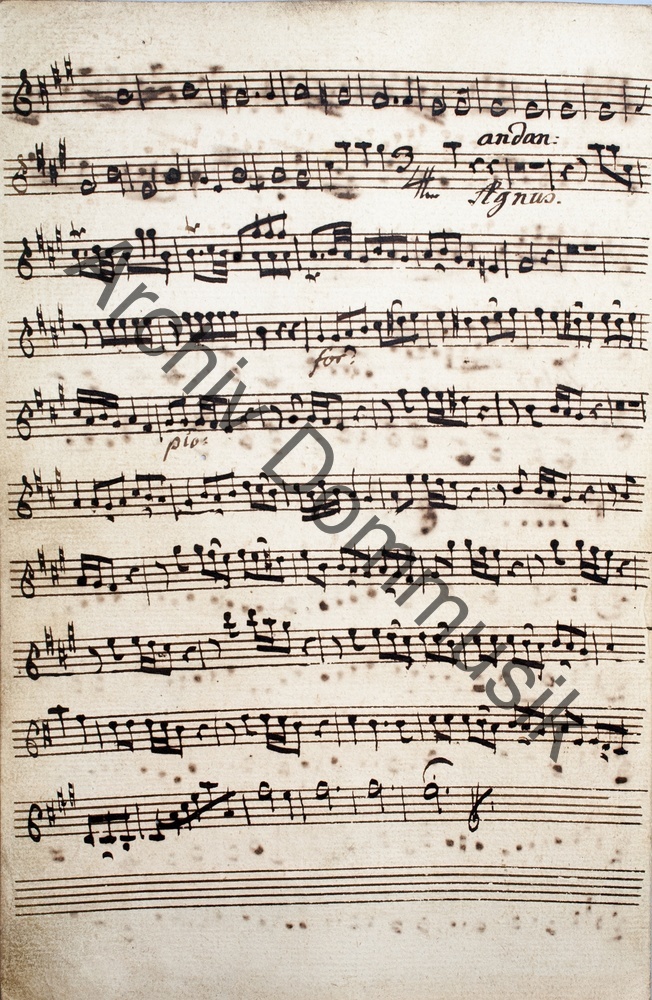 andan:
3/4
Agnus.
for:
pio:
Archiv Dommusik